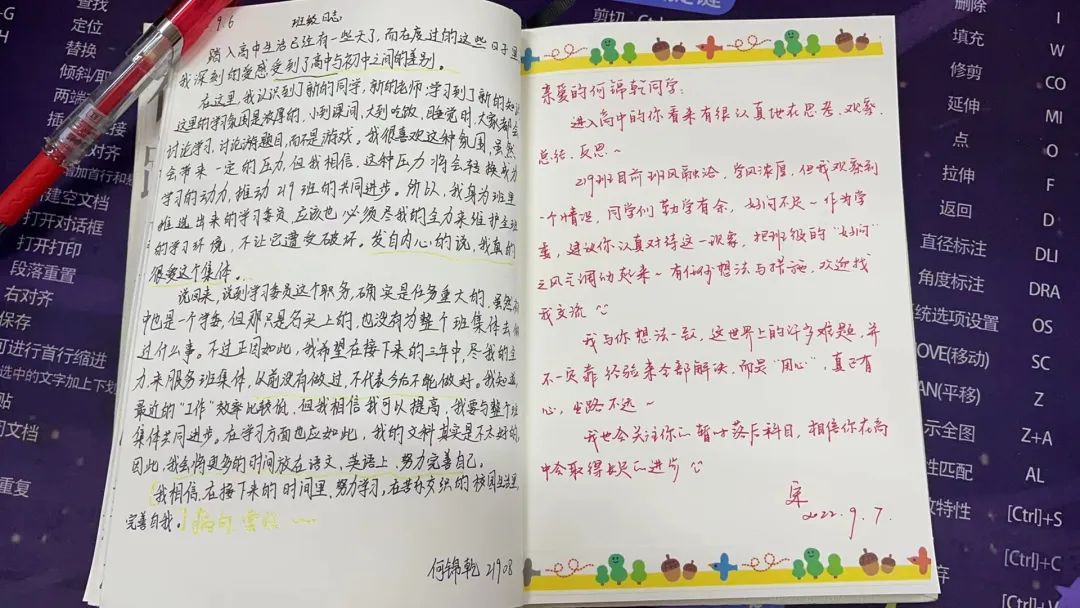 9.6 班级日志
踏入高中生活已经有一些天了,而在度过的这些日子里
我深刻的爱感受到了高中与初中之间的差别。
在这里,我认识到了新的同学,新的老师,学习到了新的知识
这里的学习氛围是浓厚的,小到课间,大到吃饭,睡觉时,大家都会
讨论学习,讨论游题目,而不是游戏。我很喜欢这种氛围,虽然
会带来一定的压力,但我相信,这种压力将会转换成为
学习的动力,推动219班的共同进步。所以,我身为班里
推选出来的学习委员,应该也必须尽我的全力来维护全班
的学习环境,不让它遭受破坏。发自内心的说,我真的
很爱这个集体。
说回来,说到学习委员这个职务,确实是任务重大的,虽然初
中也是一个学委,但那只是名头上的,也没有为整个班集体去做
过什么事。不过正因如此,我希望在接下来的三年中,尽我的全
力,来服务班集体,以前没有做过,不代表今后不能做好。我知道,
最近的“工作”效率比较低,但我相信我可以提高,我要与整个班
集体共同进步。在学习方面也应如此,我的文科真实是不太好的,
因此,我会将更多的时间放在语文,英语上,努力完善自己。
我相信,在接下来的时间里,努力学习,在苦乐交织的校园生活里,
完善自我。
何锦乾 21908
亲爱的何锦乾同学:
进入高中的你看来有很认真地在思考、观察、
总结、反思~
219班目前班风融洽,学风浓厚,但我观察到
一个情况,同学们勤学有余,好问不足~作为学
委,建议你认真对待这一现象,把班级的“好问”
之风气调动起来~有任何想法与措施,欢迎找
我交流
我与你想法一致,这世界上的许多难题,并
不一定靠经验来全部解决,而是“用心”,真正有
心,出路不远~
我也会关注你的暂时落后科目,相信你在高
中会取得长足的进步
宋
2022.9.7.
查找
定位
替换
段落重置
右对齐
保存
可进行首行缩进
打开对话框
打开打印
重复
剪切
删除 I
填充 W
修剪 CO
延伸 MI
点 O
拉伸 F
返回 D
直径标注 DLI
角度标注 DRA
系统选项设置 OS
MOVE(移动) SC
PAN(平移) Z
显示全图 Z+A
属性匹配 AL
[Ctrl]+S
[Ctrl]+C